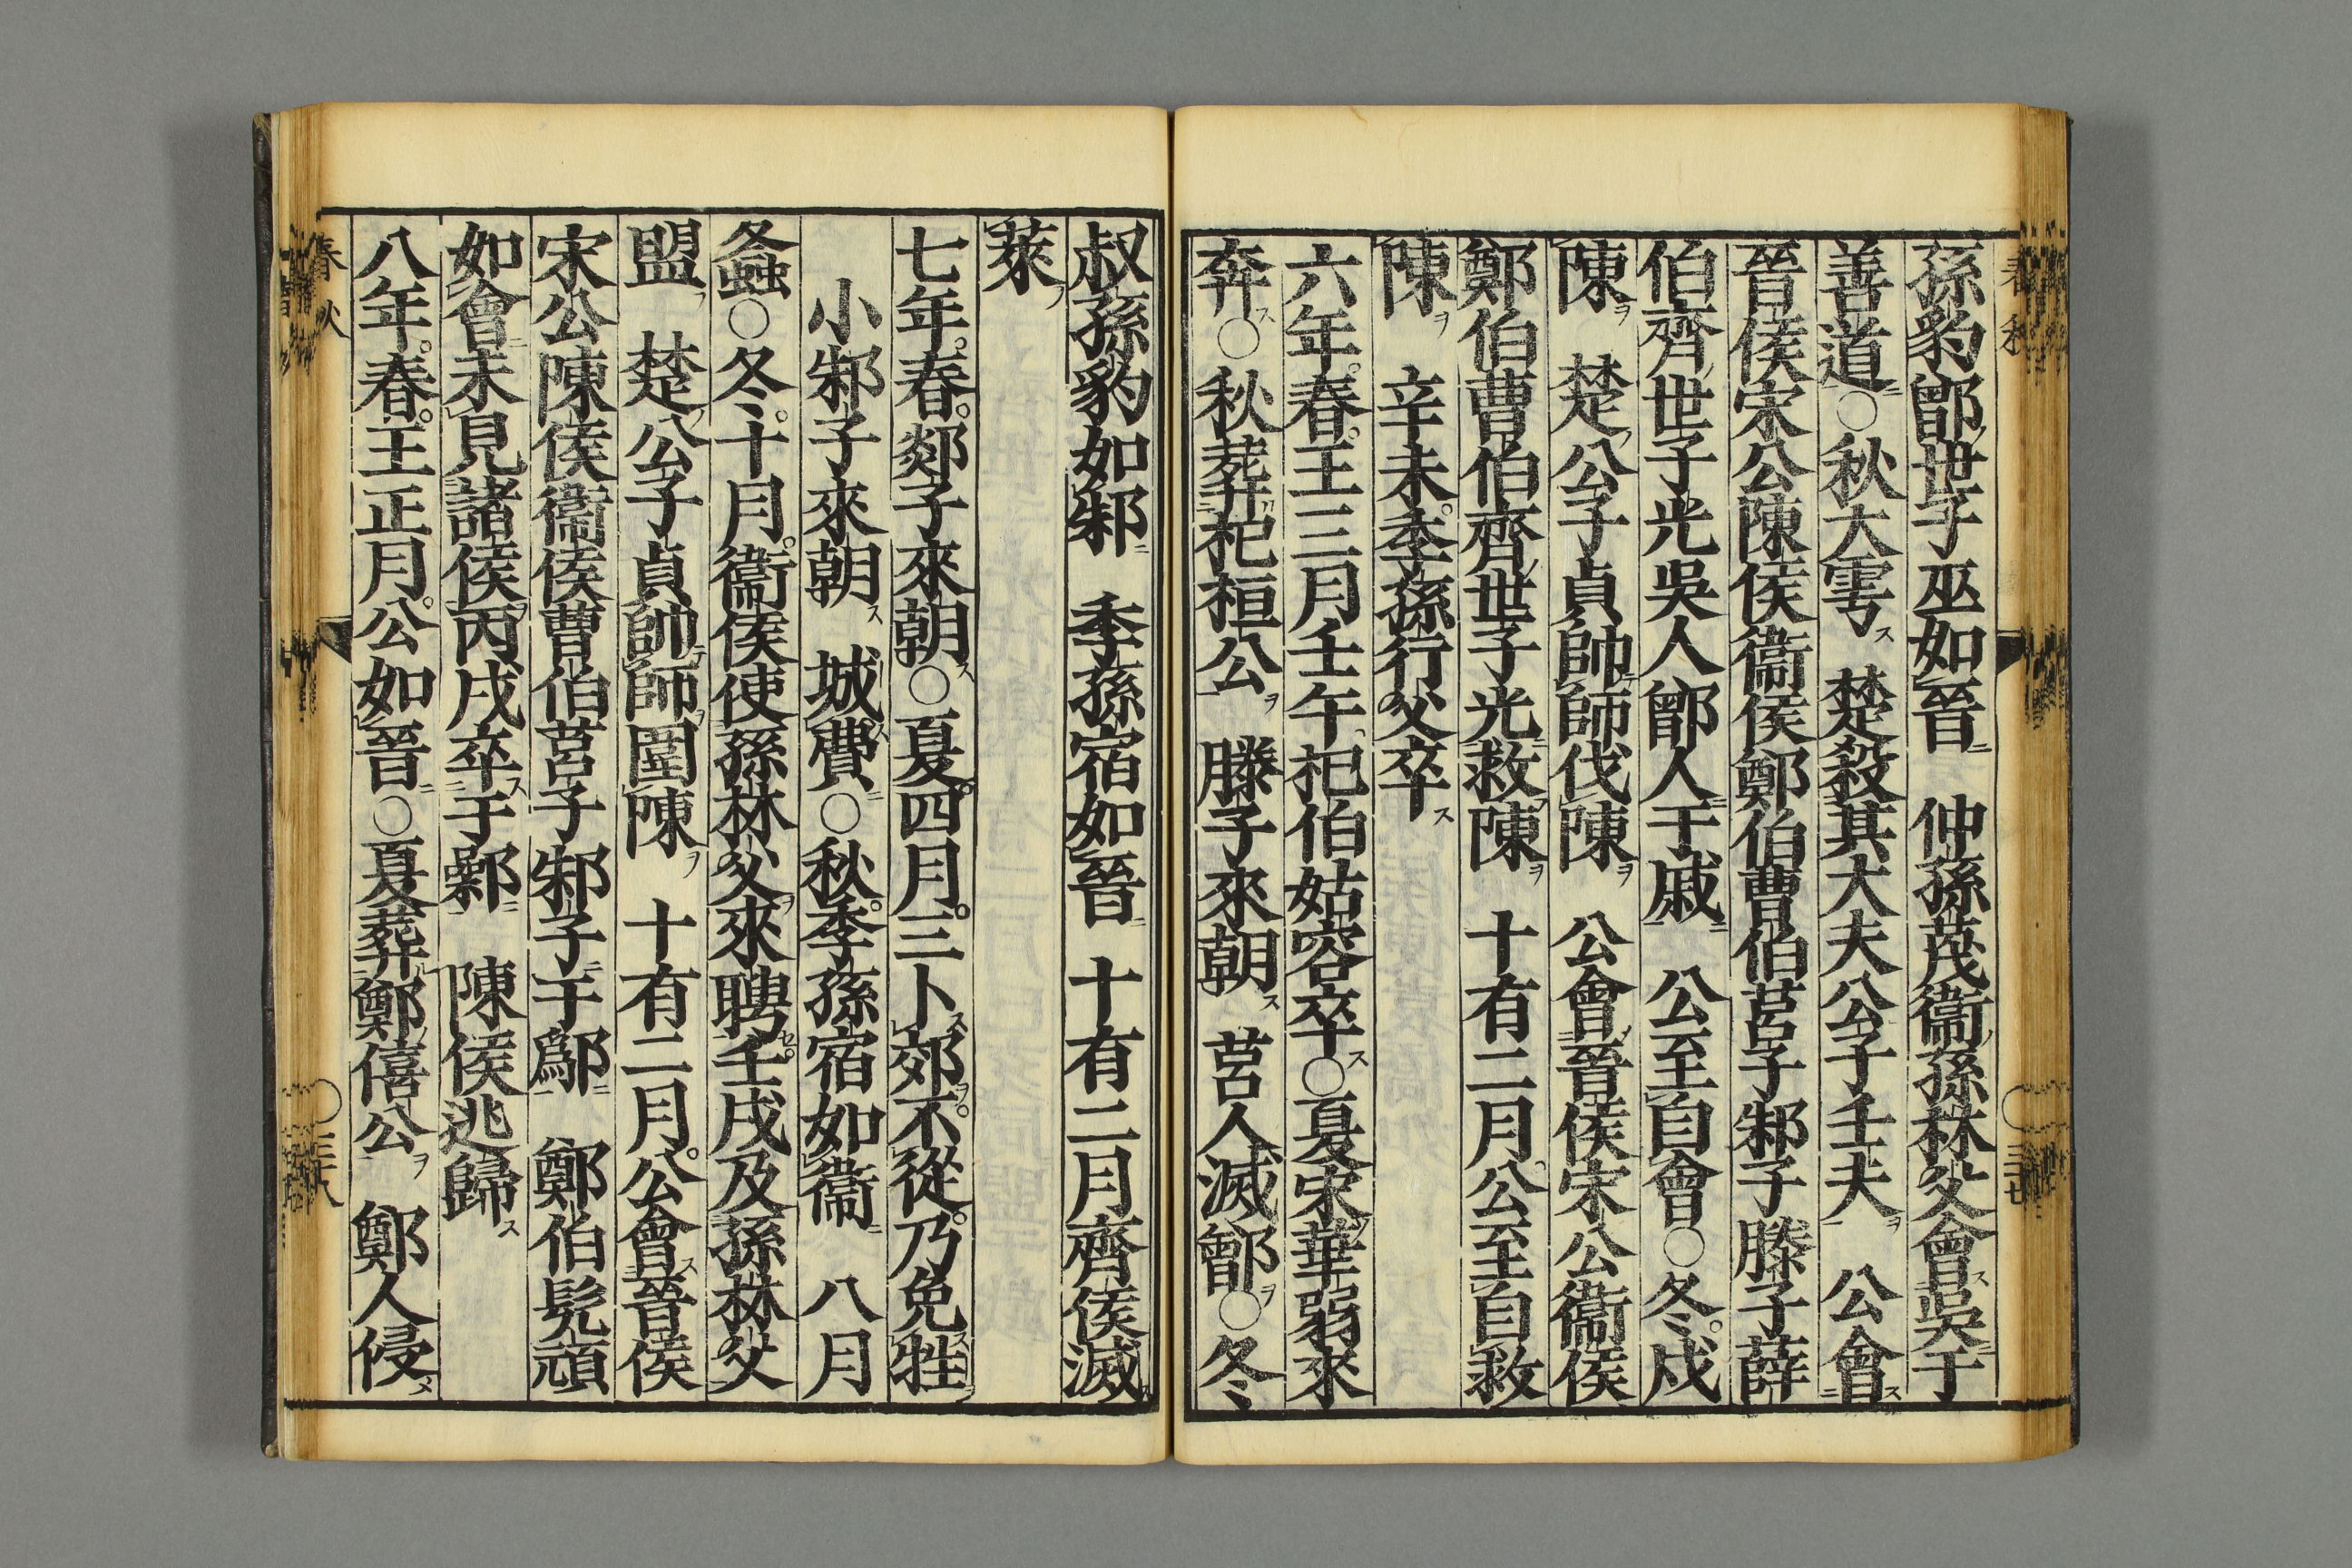 孫豹鄫世子巫如晉　仲孫蔑衞孫林父會吳于
善道○秋大雩　楚殺其大夫公子壬夫　公會
晉侯宋公陳侯衞侯鄭伯曹伯莒子邾子滕子薛
伯齊世子光吳人鄫人于戚　公至自會○冬戍
陳　楚公子貞帥師伐陳　公會晉侯宋公衞侯
鄭伯曹伯齊世子光救陳　十有二月公至自救
陳　辛未季孫行父卒
六年春王三月壬午杞伯姑容卒○夏宋華弱來
奔○秋葬杞桓公　滕子來朝　莒人滅鄫○冬
叔孫豹如邾　季孫宿如晉　十有二月齊侯滅
萊
七年春郯子來朝○夏四月三卜郊不從乃免牲
小邾子來朝　城費○秋季孫宿如衞　八月
螽○冬十月衞侯使孫林父來聘壬戌及孫林父
盟　楚公子貞帥師圍陳　十有二月公會晉侯
宋公陳侯衞侯曹伯莒子邾子于鄬　鄭伯髡頑
如會未見諸侯丙戌卒于鄵　陳侯逃歸
八年春王正月公如晉○夏葬鄭僖公　鄭人侵
春秋
○三十八